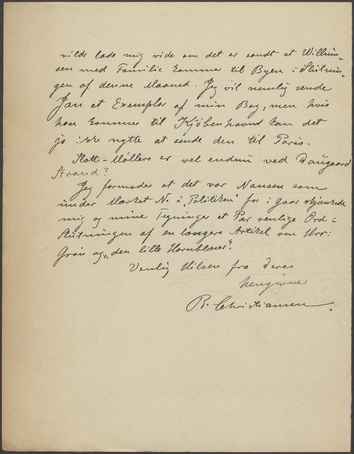 vilde lade mig vide om det er sandt at Willum-
sen med Familie kommer til Byen i Slutnin-
gen af denne Maaned. Jeg vil nemlig sende
Jan et Exemplar af min Bog, men hvis
han kommer til Kjöbenhavn kan det
jo ikke nytte at sende den til Paris.
Slott-Möllers er vel endnu ved Daugaard
Strand?
Jeg formoder at det var Nansen som
under Mærket Nr. i "Politiken" for i Gaar skjænkede
mig og mine Tegninger et Par venlige Ord –
Slutningen af en længere Artikel om Mor:
Grön og "den lille Hornblæser".
Venlig Hilsen fra Deres
hengivne
R. Christiansen.